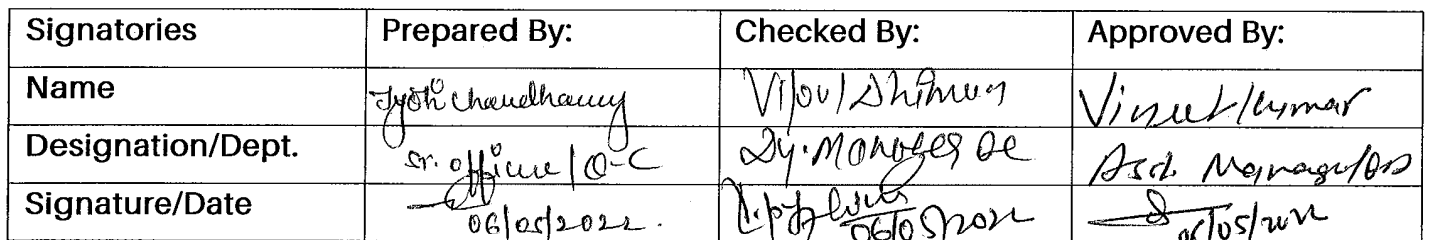 Signatories Prepared By: Checked By: Approved By:
Name Jyoti Chaudhary Vineet Kumar
Designation/Dept. Sr. officer/Q-C Dy. Manager QC Asst. Manager/
Signature/Date 06/05/2022. 06/05/2022 06/05/2022